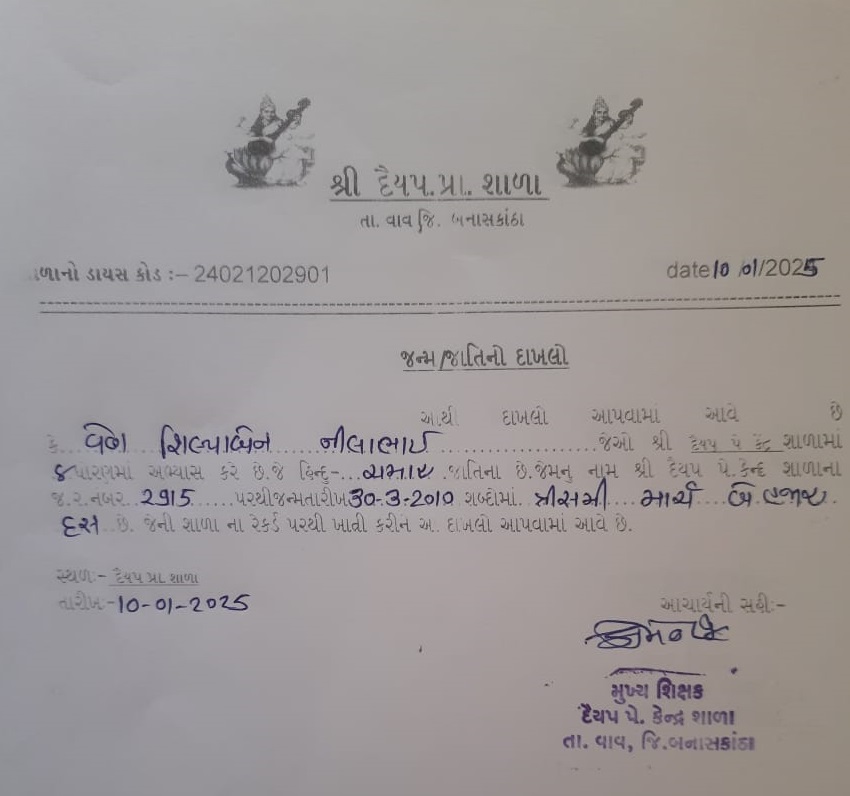 શ્રી દૈયપ.પ્રા. શાળા
તા. વાવ જિ. બનાસકાંઠા
ળાનો ડાયસ કોડ :– 24021202901 date 10 /01/2025
જન્મ/જાતિનો દાખલો
આથી દાખલો આપવામાં આવે છે
કે શિલ્પાબેન નીલાભાઈ જેઓ શ્રી દૈયપ પે કેન્દ્ર શાળામાં
ધોરણમાં અભ્યાસ કરે છે.જે હિન્દુ-... ચમાર જાતિના છે.જેમનુ નામ શ્રી દૈયપ પે.કેન્દ્ર શાળાના
જ.ર.નંબર 2915 પરથીજન્મતારીખ 30-3-2010 શબ્દોમાં ત્રીસમી માર્ચ બે હજાર
દસ છે. જેની શાળા ના રેકર્ડ પરથી ખાત્રી કરીને આ દાખલો આપવામાં આવે છે.
સ્થળ:- દૈયપ પ્રા. શાળા
તારીખ:-10-01-2025 આચાર્યની સહી:-
મુખ્ય શિક્ષક
દૈયપ પે. કેન્દ્ર શાળા
તા. વાવ, જિ.બનાસકાંઠા